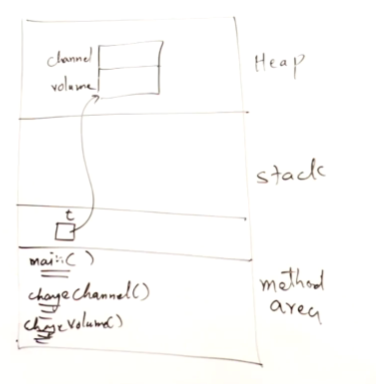 channel
volume
Heap
stack
t
main()
chageChannel()
chageVolume()
method
area